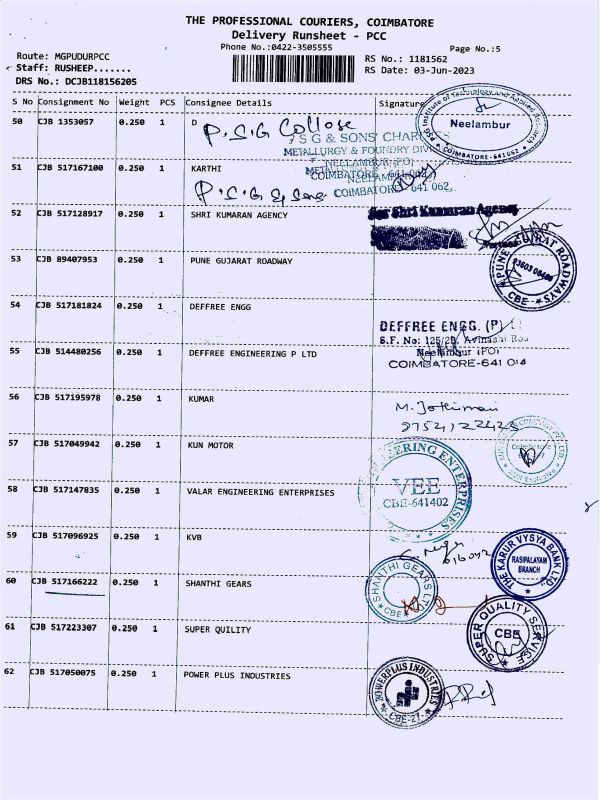 THE PROFESSIONAL COURIERS, COIMBATORE
Delivery Runsheet - PCC
Phone No.:0422-3505555
Page No.:5
Route: MGPUDURPCC
RS No.: 1181562
Staff: RUSHEEP.......
RS Date: 03-Jun-2023
DRS No.: DCJB118156205
S No Consignment No Weight PCS Consignee Details Signature
50 CJB 1353057 0.250 1 D
P.S.G College
PSG Institute of Technology and Applied Research
Neelambur
COIMBATORE-641062
S G & SONS' CHARITIES
METALLURGY & FOUNDRY DIVISION
NEELAMBUR (PO)
COIMBATORE 641 062
51 CJB 517167100 0.250 1 KARTHI
P.S.G & Sons
COIMBATORE 641 062.
52 CJB 517128917 0.250 1 SHRI KUMARAN AGENCY
For Shri Kumaran Agency
53 CJB 89407953 0.250 1 PUNE GUJARAT ROADWAY
PUNE GUJRAT ROADWAYS
CBE
54 CJB 517181824 0.250 1 DEFFREE ENGG
DEFFREE ENGG. (P)
S.F. No: 125/2B, Avinashi Roa
Neelambur (PO)
COIMBATORE-641 014
55 CJB 514480256 0.250 1 DEFFREE ENGINEERING P LTD
56 CJB 517195978 0.250 1 KUMAR
57 CJB 517049942 0.250 1 KUN MOTOR
Coimbatore
58 CJB 517147835 0.250 1 VALAR ENGINEERING ENTERPRISES
ENGINEERING ENTERPRISES
VEE
CBE-641402
59 CJB 517096925 0.250 1 KVB
THE KARUR VYSYA BANK LTD.
RASIPALAYAM
BRANCH
60 CJB 517166222 0.250 1 SHANTHI GEARS
SHANTHI GEARS LTD
CBE
61 CJB 517223307 0.250 1 SUPER QUILITY
SUPER QUALITY SERVICE
CBE
62 CJB 517050075 0.250 1 POWER PLUS INDUSTRIES
POWERPLUS INDUSTRIES
CBE-27